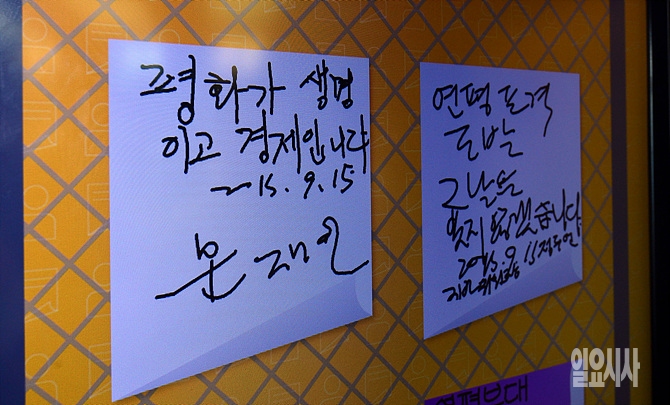 평화가 생명
이고 경제입니다
2015. 9. 15
문재인
연평 포격
도발
그날을
잊지 않겠습니다
2015. 9. 15
연평부대
일요시사